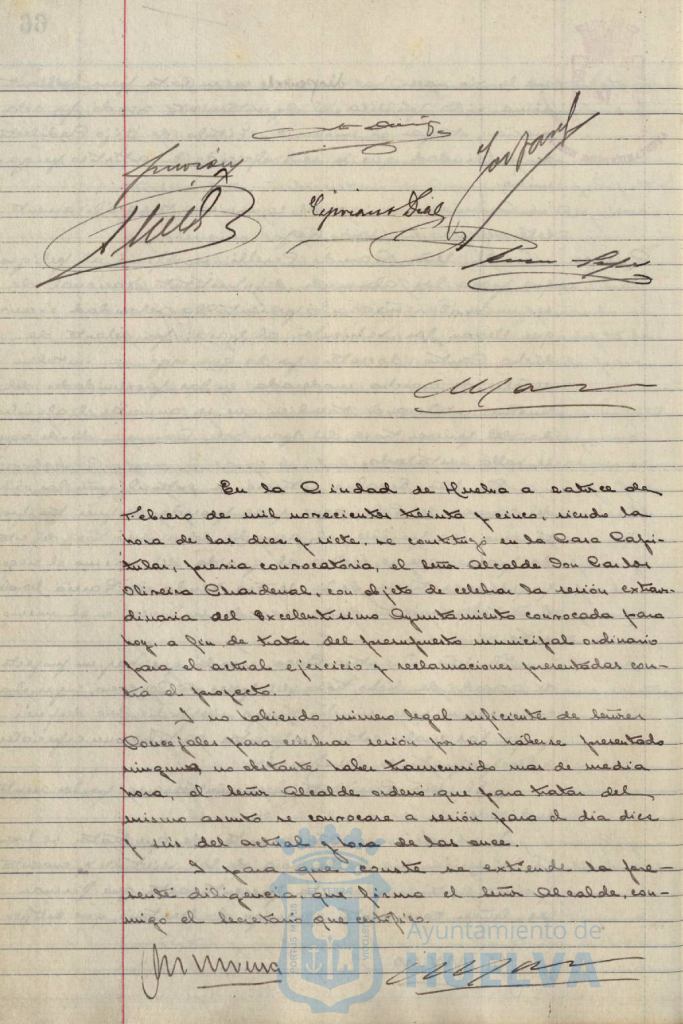 Cipriano Dial
En la Ciudad de Huelva a catorce de
Febrero de mil novecientos treinta y cinco, siendo la
hora de las diez y siete, se constituyó en la Casa Capi-
tular, previa convocatoria, el Señor Alcalde Don Carlos
Oliveira Chardenal, con objeto de celebrar la sesión extraor-
dinaria del Excelentísimo Ayuntamiento convocada para
hoy, a fin de tratar del presupuesto municipal ordinario
para el actual ejercicio y reclamaciones presentadas con-
tra el proyecto.
Y no habiendo número legal suficiente de Señores
Concejales para celebrar sesión por no haberse presentado
ninguno, no obstante haber transcurrido mas de media
hora, el Señor Alcalde ordenó que para tratar del
mismo asunto se convocase a sesión para el día diez
y seis del actual y hora de las once.
Y para que conste se extiende la pre-
sente diligencia, que firma el Señor Alcalde, con-
migo el Secretario que certifico.
Ayuntamiento de
HUELVA